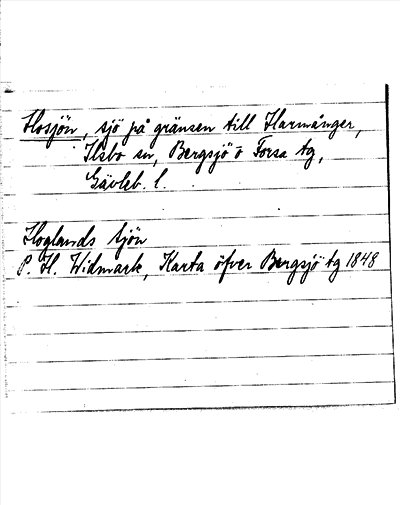 Hosjön, sjö på gränsen till Harmånger,
Ilsbo sn, Bergsjö o Forsa tg,
Gävleb. l.
Hoglands sjön
P. H. Widmark, Karta öfver Bergsjö tg 1848